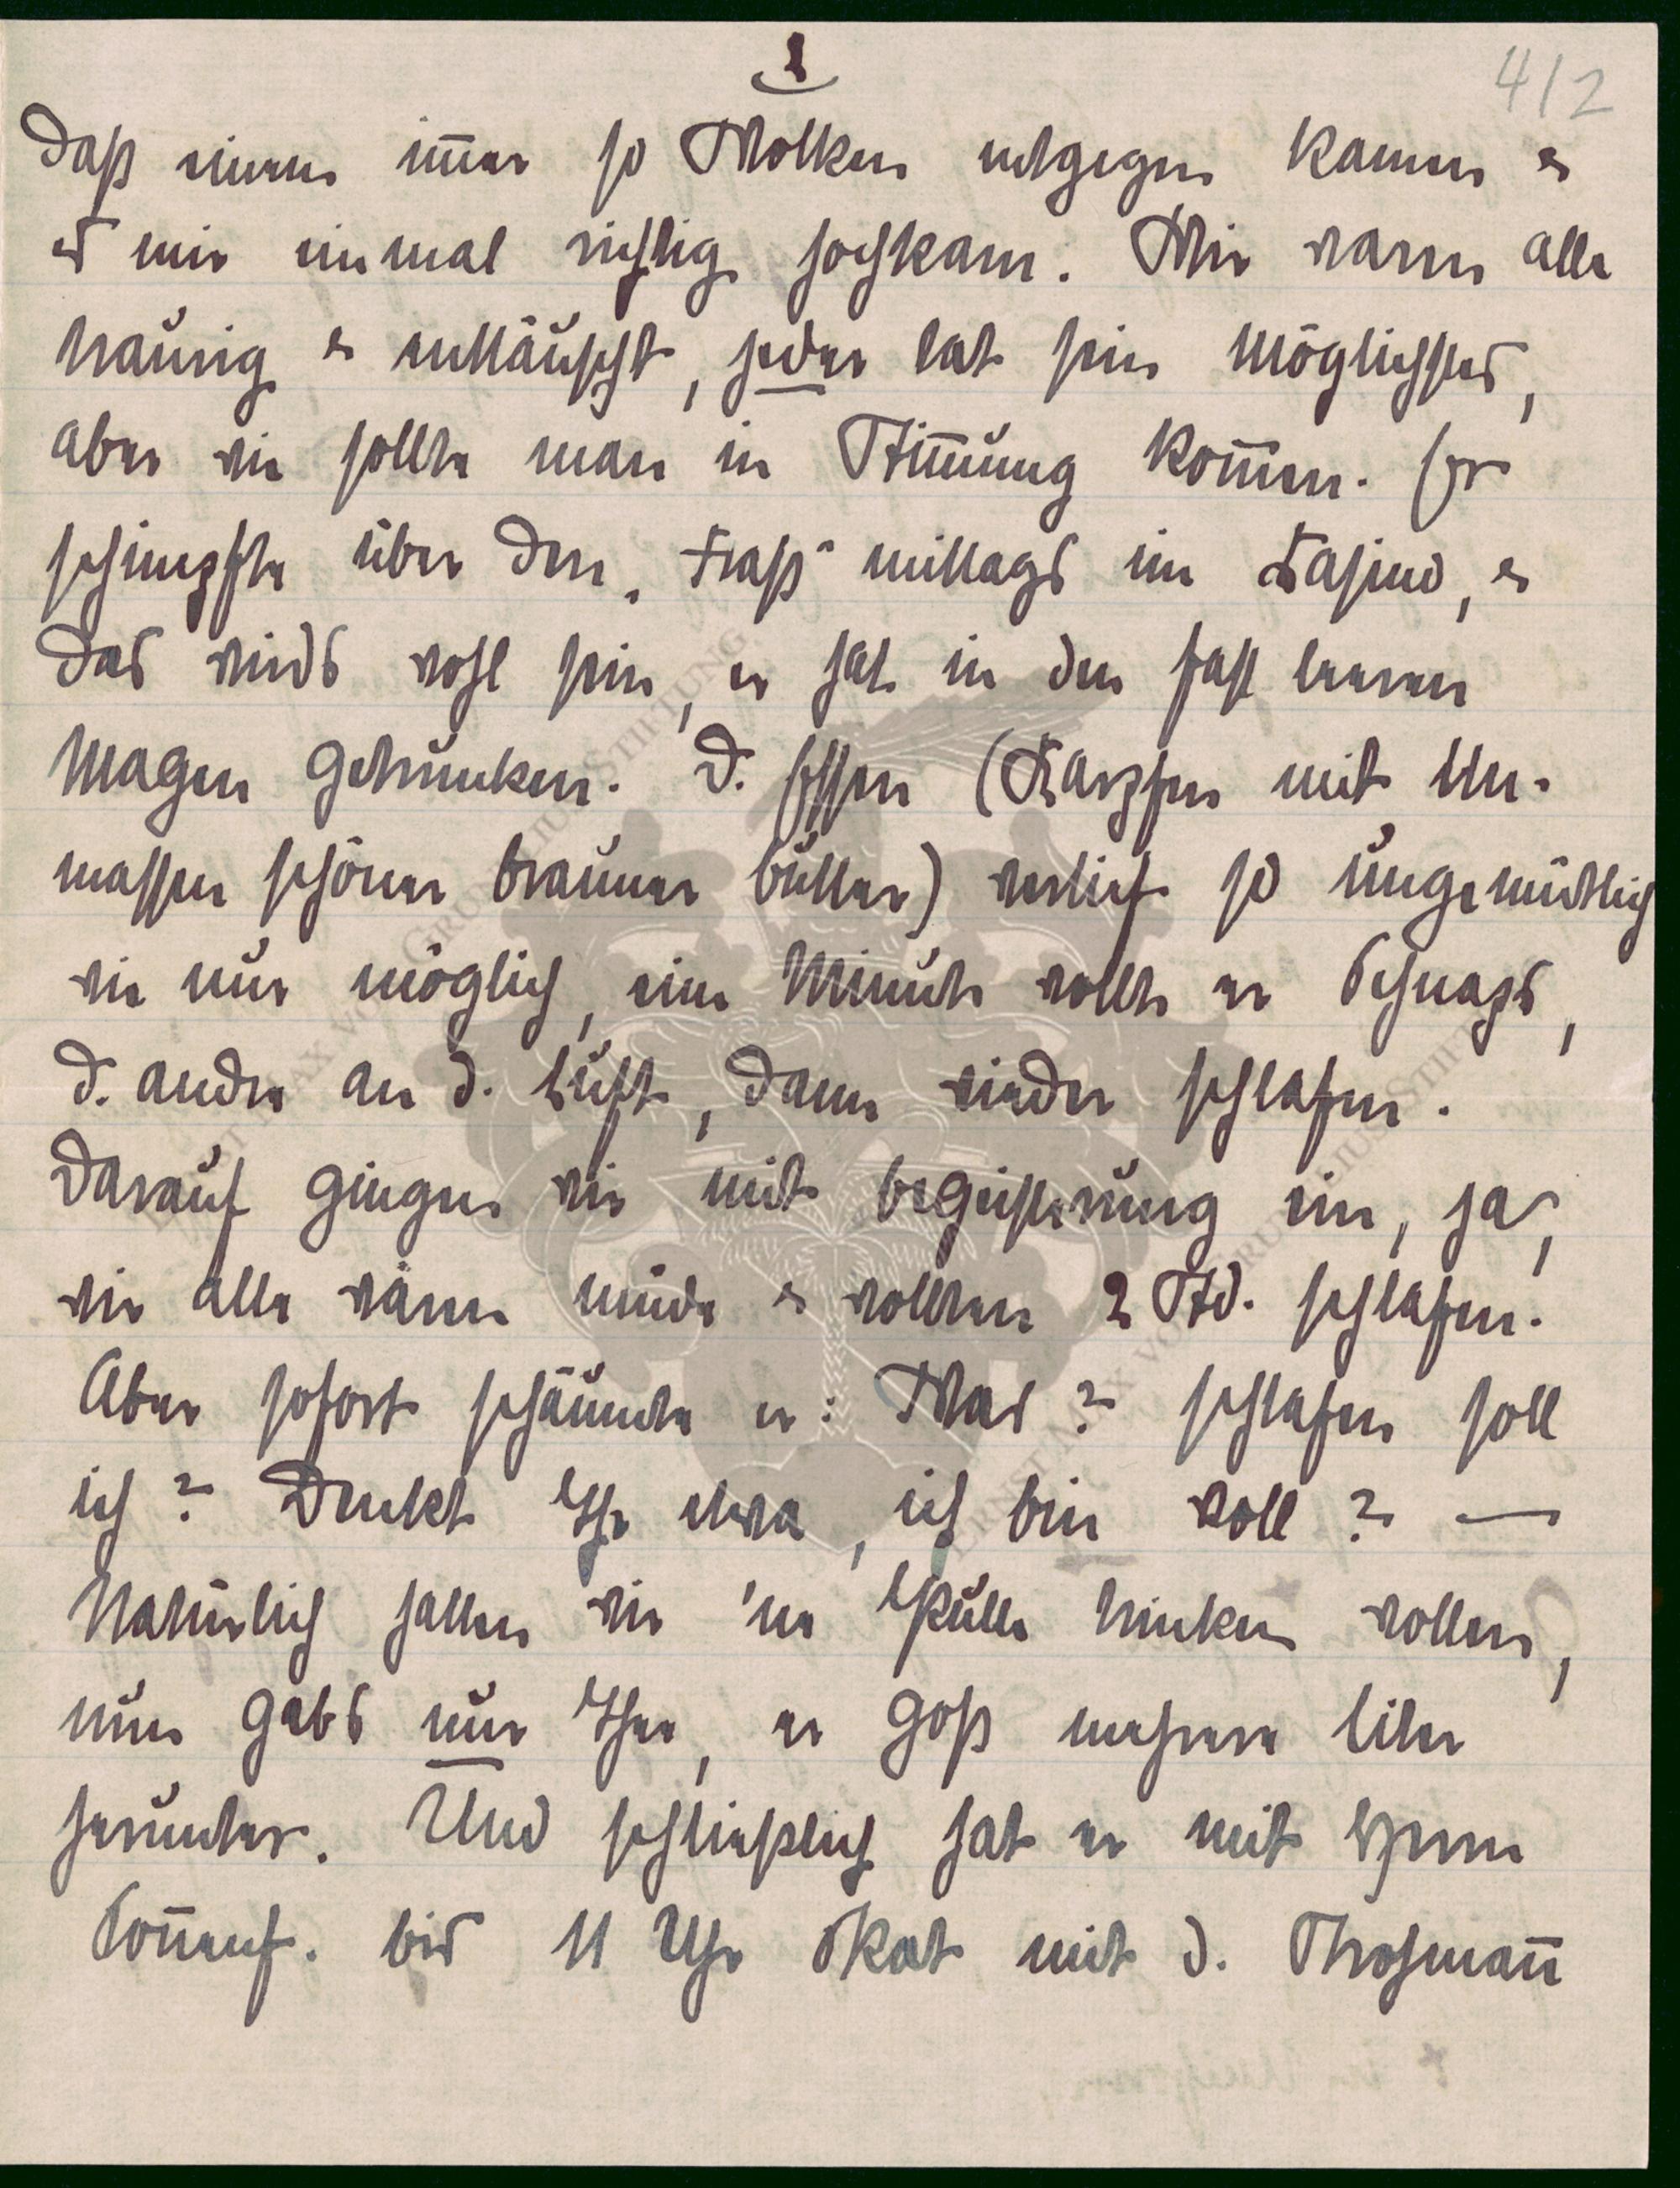 2
4/2
daß einem im̅er so Wolken entgegen kamen &
es mir einmal richtig hochkam. Wir waren alle
traurig & enttäuscht, jeder tat sein Möglichstes,
aber wie sollte man in Stim̅ung kom̅en. Er
schimpfte über den „Fraß“ mittags im Kasino, &
das wirds wohl sein, er hat in den fast leeren
Magen getrunken. D. Essen (Karpfen mit Un-
massen schöner brauner Butter) verlief so ungemütlich
wie nur möglich, eine Minute wollte er Schnaps,
d. andre an d. Luft, dann wieder schlafen.
Darauf gingen wir mit Begeisterung ein, ja,
wir alle wären müde & wollten 2 Std. schlafen.
Aber sofort schäumte er: Was? schlafen soll
ich? Denkt Ihr etwa, ich bin voll? —
Natürlich hatten wir 'ne Pulle trinken wollen,
nun gabs nur Thee, er goß mehrere Liter
herunter. Und schließlich hat er mit Herrn
Son̅enf. bis 11 Uhr Skat mit d. Strohman̅
GRUNELIUSSTIFTUNG